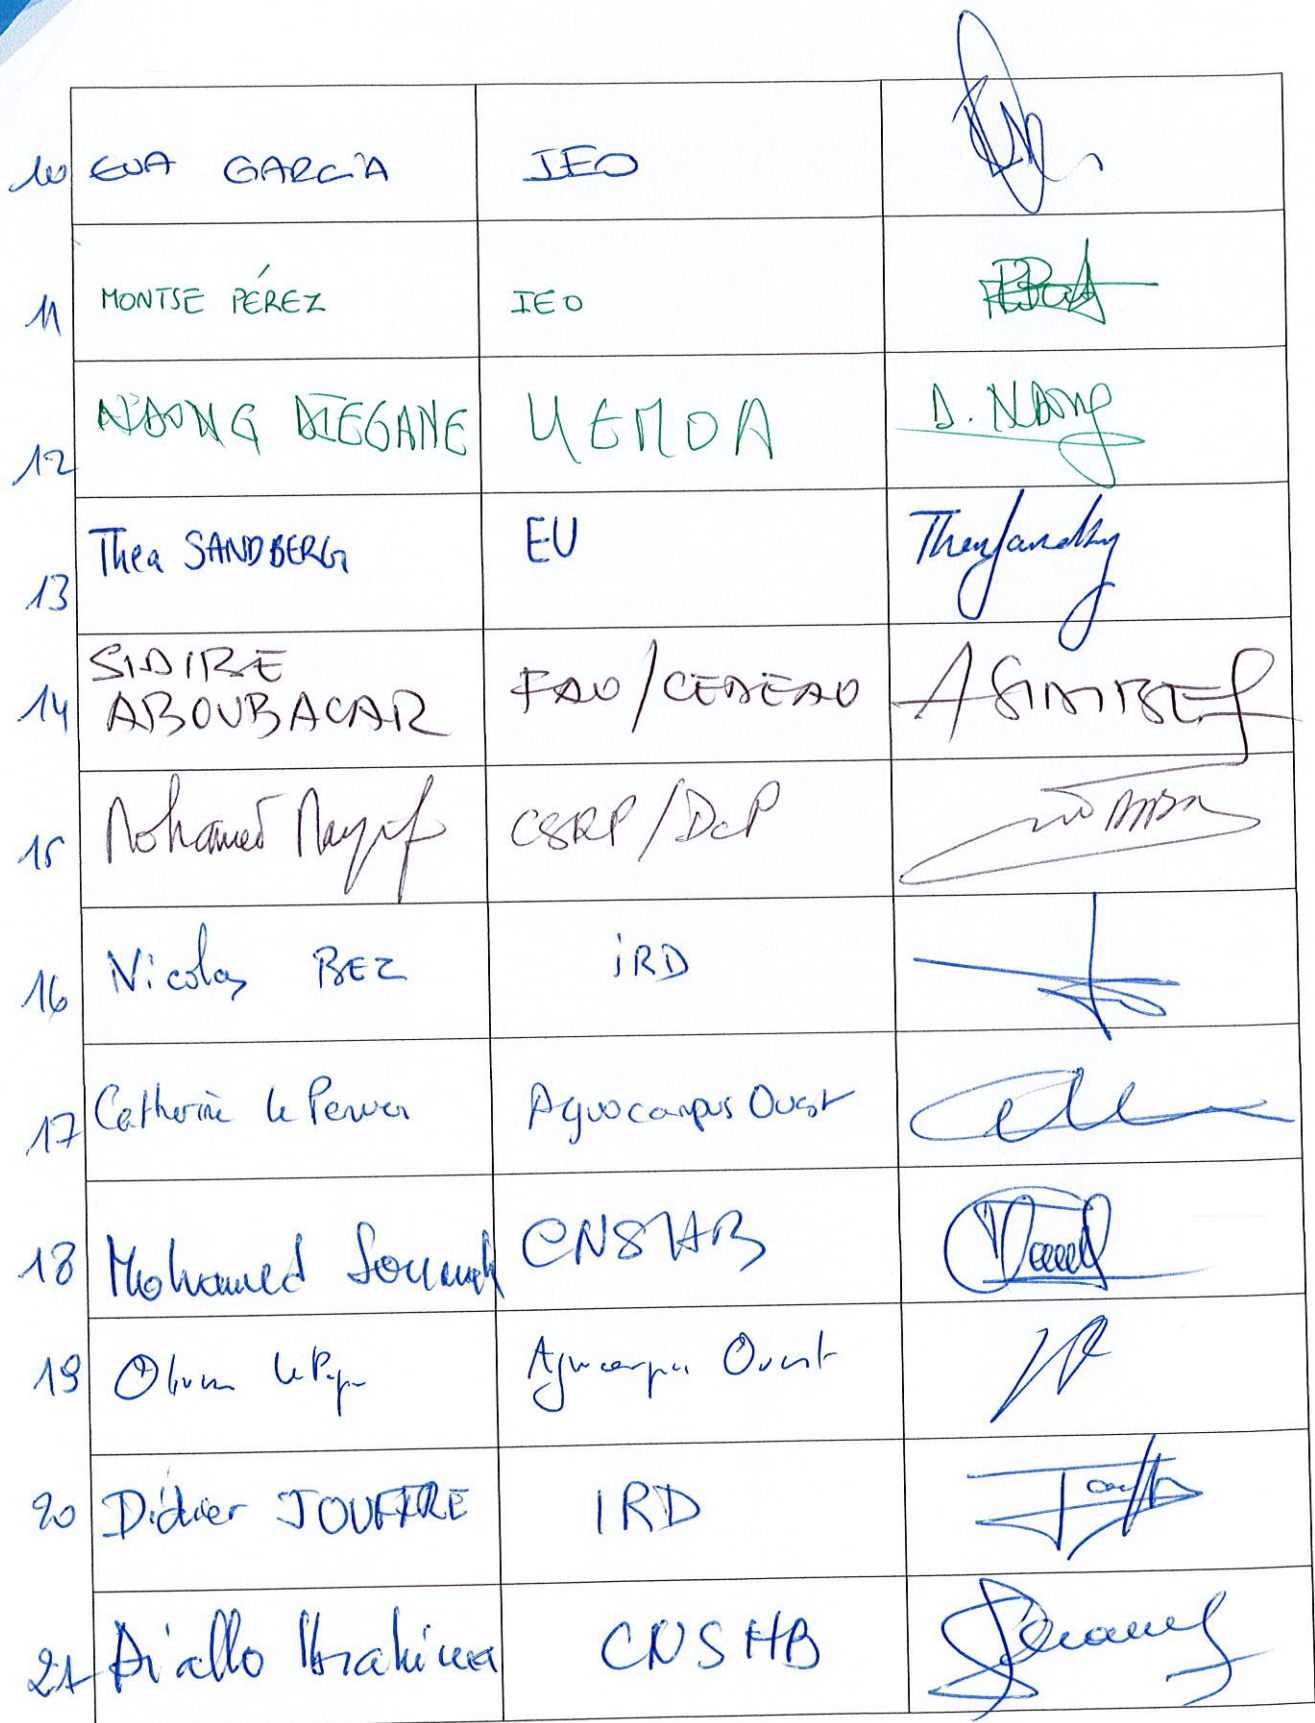 10 EVA GARCIA IEO
11 MONTSE PÉREZ IEO
12 NDONG DIEGANE UEMOA D. NDong
13 Thea SANDBERG EU
14 SIDIBE
ABOUBACAR FAO/CEDEAO ASIDIBE
15 Mohamed CSRP/DcP
16 Nicolas BEZ iRD
17 Catherine le Penven Agrocampus Ouest
18 Mohamed CNSHB
19 Olivier le Pape Agrocampus Ouest
20 Didier JOUFFRE IRD
21 Diallo Ibrahima CNSHB